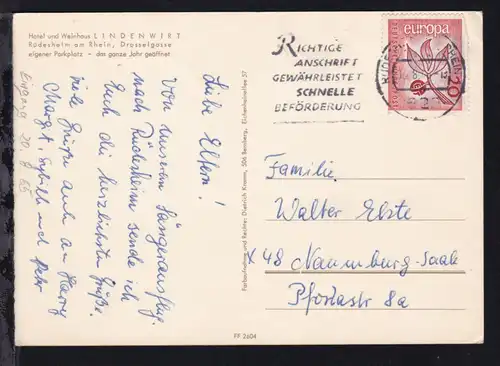 Hotel und Weinhaus LINDENWIRT
Rüdesheim am Rhein, Drosselgasse
eigener Parkplatz - das ganze Jahr geöffnet
Liebe Eltern!
Von unserem Sängerausflug
nach Rüdesheim sende ich
Euch die herzlichsten Grüße.
Viele Grüße auch an Harry
Margit, Sybille und Peter
Eingang 20. 8. 65
Farbaufnahme und Rechte: Dietrich Kramm, 506 Bensberg, Eichenhainallee 37
FF 2604
RICHTIGE
ANSCHRIFT
GEWÄHRLEISTET
SCHNELLE
BEFÖRDERUNG
europa
20
Familie
Walter Elste
X 48 Naumburg-Saale
Pfortastr 8a